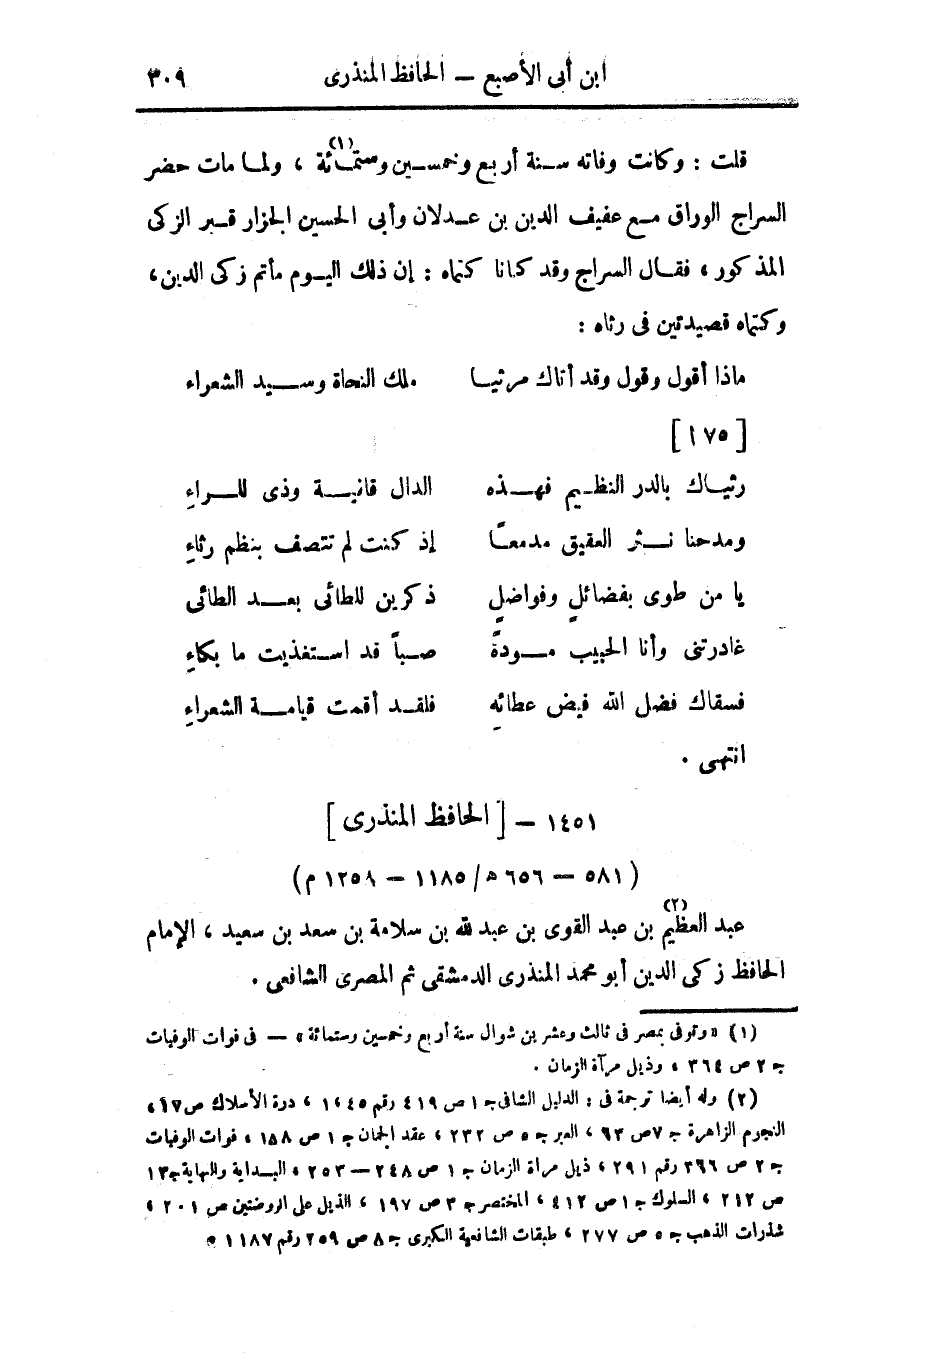 ابن أبى الأصبع — الحافظ المنذرى ٣٠٩
قلت : وكانت وفاته سنة أربع وخمسين وستمائة (١) ، ولما مات حضر
السراج الوراق مع عفيف الدين بن عدلان وأبى الحسين الجزار قبر الزكى
المذكور ، فقال السراج وقد كانا كتماه : إن ذلك اليوم مأتم زكى الدين ،
وكتماه قصيدتين فى رثاه :
ماذا أقول وقول وقد أتاك مرثيا ملك النحاة وسيد الشعراء
[ ١٧٥ ]
رثياك بالدر النظيم فهذه الدال قانية وذى للراءِ
ومدحنا نثر العقيق مدمعًا إذ كنت لم تتصف بنظم رثاءِ
يا من طوى بفضائلٍ وفواضلٍ ذكرين للطائى بعد الطائى
غادرتنى وأنا الحبيب مودةً صباً قد استغذيت ما بكاءِ
فسقاك فضل الله فيض عطائِه فلقد أقمت قيامة الشعراءِ
انتهى .
١٤٥١ — [ الحافظ المنذرى ]
( ٥٨١ — ٦٥٦ ه / ١١٨٥ — ١٢٥٨ م )
عبد العظيم (٢) بن عبد القوى بن عبد لله بن سلامة بن سعد بن سعيد ، الإمام
الحافظ زكى الدين أبو محمد المنذرى الدمشقى ثم المصرى الشافعى .
(١) « وتوفى بمصر فى ثالث وعشرين شوال سنة أربع وخمسين وستمائة » — فى فوات الوفيات
ج ٢ ص ٣٦٤ ، وذيل مرآة الزمان .
(٢) وله أيضا ترجمة فى : الدليل الشافى ج ١ ص ٤١٩ رقم ١٤٤٥ ، درة الأسلاك ص ١٧ ،
النجوم الزاهرة ج ٧ ص ٦٣ ، العبر ج ٥ ص ٢٣٢ ، عقد الجمان ج ١ ص ١٥٨ ، فوات الوفيات
ج ٢ ص ٣٦٦ رقم ٢٩١ ، ذيل مرآة الزمان ج ١ ص ٢٤٨ — ٢٥٣ ، البداية والنهاية ج ١٣
ص ٢١٢ ، السلوك ج ١ ص ٤١٢ ، المختصر ج ٣ ص ١٩٧ ، الذيل على الروضتين ص ٢٠١ ،
شذرات الذهب ج ٥ ص ٢٧٧ ، طبقات الشافعية الكبرى ج ٨ ص ٢٥٩ رقم ١١٨٧ .